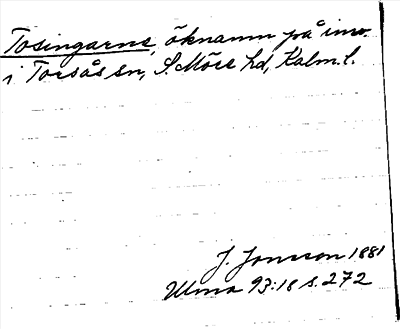 Tosingarne, öknamn på inv.
i Torsås sn, S. Möre hd, Kalm. l.
J. Jonsson 1881
Ulma 93:18 s. 272